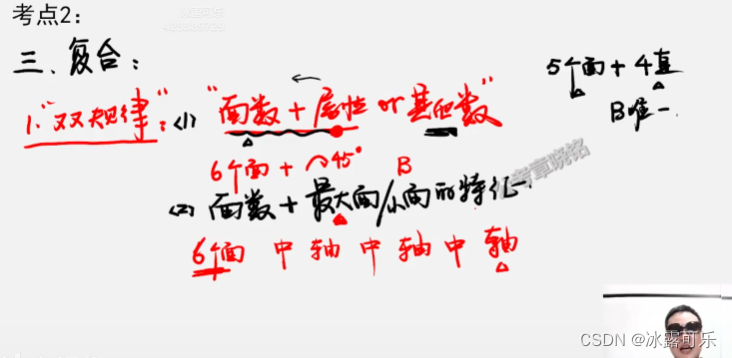 考点2:
三、复合:
5个面 + 4直
B唯一
1."双规律":<1> "面数 + 属性 or 其他数"
6个面 + 45° B
<2> 面数 + 最大面/小面的特征.
6个面 中 轴 中 轴 中 轴
公考章晓铭
CSDN @冰露可乐